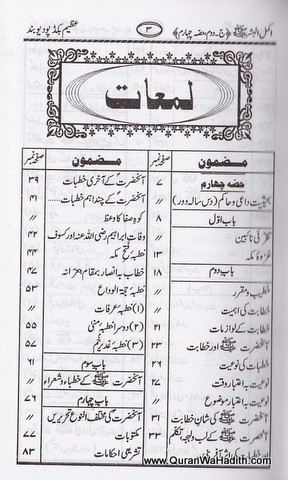 اکمل البشر ﷺ (ج۔ دوم، حصہ چہارم)
۳
عظیم بکڈپو دیوبند
لمعات
مضمون
صفحہ نمبر
حصہ چہارم
۷
بحیثیت داعی و حاکم (دس سالہ دور)
〃
باب اوّل
۸
تقرری نائبین
〃
غزوۂ مکہ
۱۳
باب دوم
۱۸
خطیب و مقرر
〃
خطابت کی اہمیت
〃
خطابت کے لوازمات
۲۱
آنحضرت ﷺ اور خطابت
۲۳
خطبات کی نوعیت
۲۶
نوعیت بہ اعتبار وقت
۲۷
نوعیت بہ اعتبار موضوع
〃
آنحضرت ﷺ کی شانِ خطابت
۳۱
آنحضرت ﷺ کے لب و لہجہ تکلم
۳۳
مضمون
صفحہ نمبر
آنحضرتؐ کے آخری خطبات
۳۹
آنحضرتؐ کے چند اہم خطبات.....
۴۱
کوہِ صفا کا وعظ
〃
وفات ابراہیم رضی اللہ عنہ اور کسوف
۴۲
خطبہ فتح مکہ
۴۴
خطاب بہ انصار بمقام جعرانہ
۴۷
خطبہ حجۃ الوداع
۵۳
(۱) خطبہ عرفات
〃
(۲) دوسرا خطبہ منیٰ
۵۵
(۳) خطبہ غدیر خم
۵۷
باب سوم
۶۱
آنحضرت ﷺ کے خطباء و شعراء
〃
باب چہارم
۷۶
آنحضرتؐ کی مختلف النوع تحریریں
〃
مکتوبات
۷۷
تشریعی احکامات
۸۳
www.QuranWaHadith.com